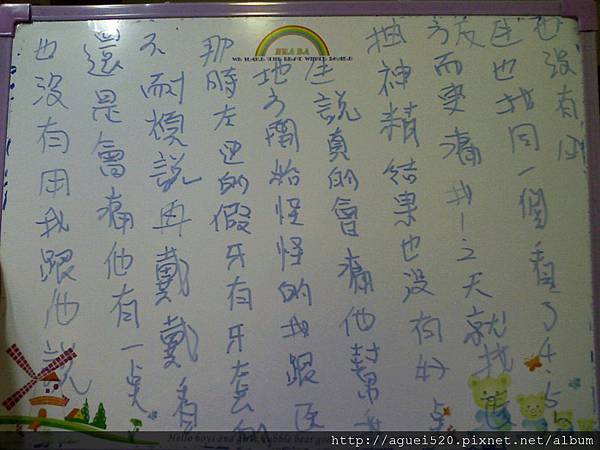 也沒有用我跟他說
還是會痛他有一點
不耐煩說再戴戴看
那時左边的假牙有牙套的
地方開始怪怪的我跟医
生說真的會痛他幫我
抽神精結果也沒有好点
反而更痛我1-2天就找医
生也找同一個看了4.5次
也沒有用
BEABA
WE MAKE THE BEST WHITE BOARD
Hello boys and girls,bubble bear
http://aguei520.pixnet.net/album